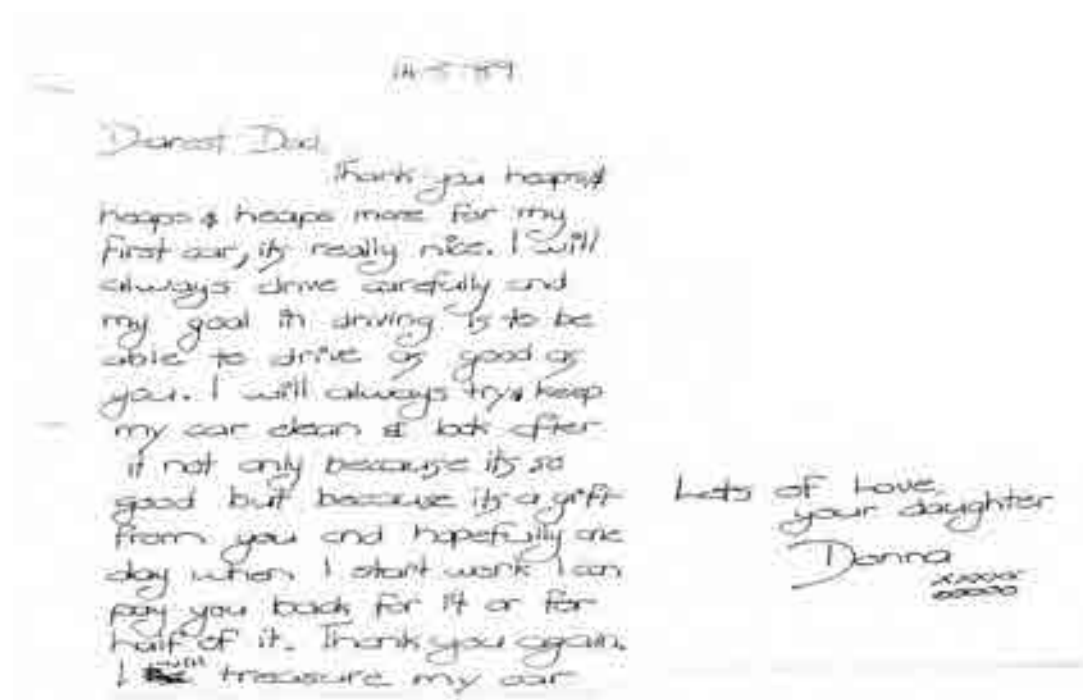 14-5-89
Dearest Dad,
Thank you heaps &
heaps & heaps more for my
first car, its really nice. I will
always drive carefully and
my goal in driving is to be
able to drive as good as
you. I will always try & keep
my car clean & look after
it not only because its so
good but because its a gift
from you and hopefully one
day when I start work I can
pay you back for it or for
half of it. Thank you again.
I will treasure my car
Lots of Love,
your daughter
Donna
xxxxx
ooooo